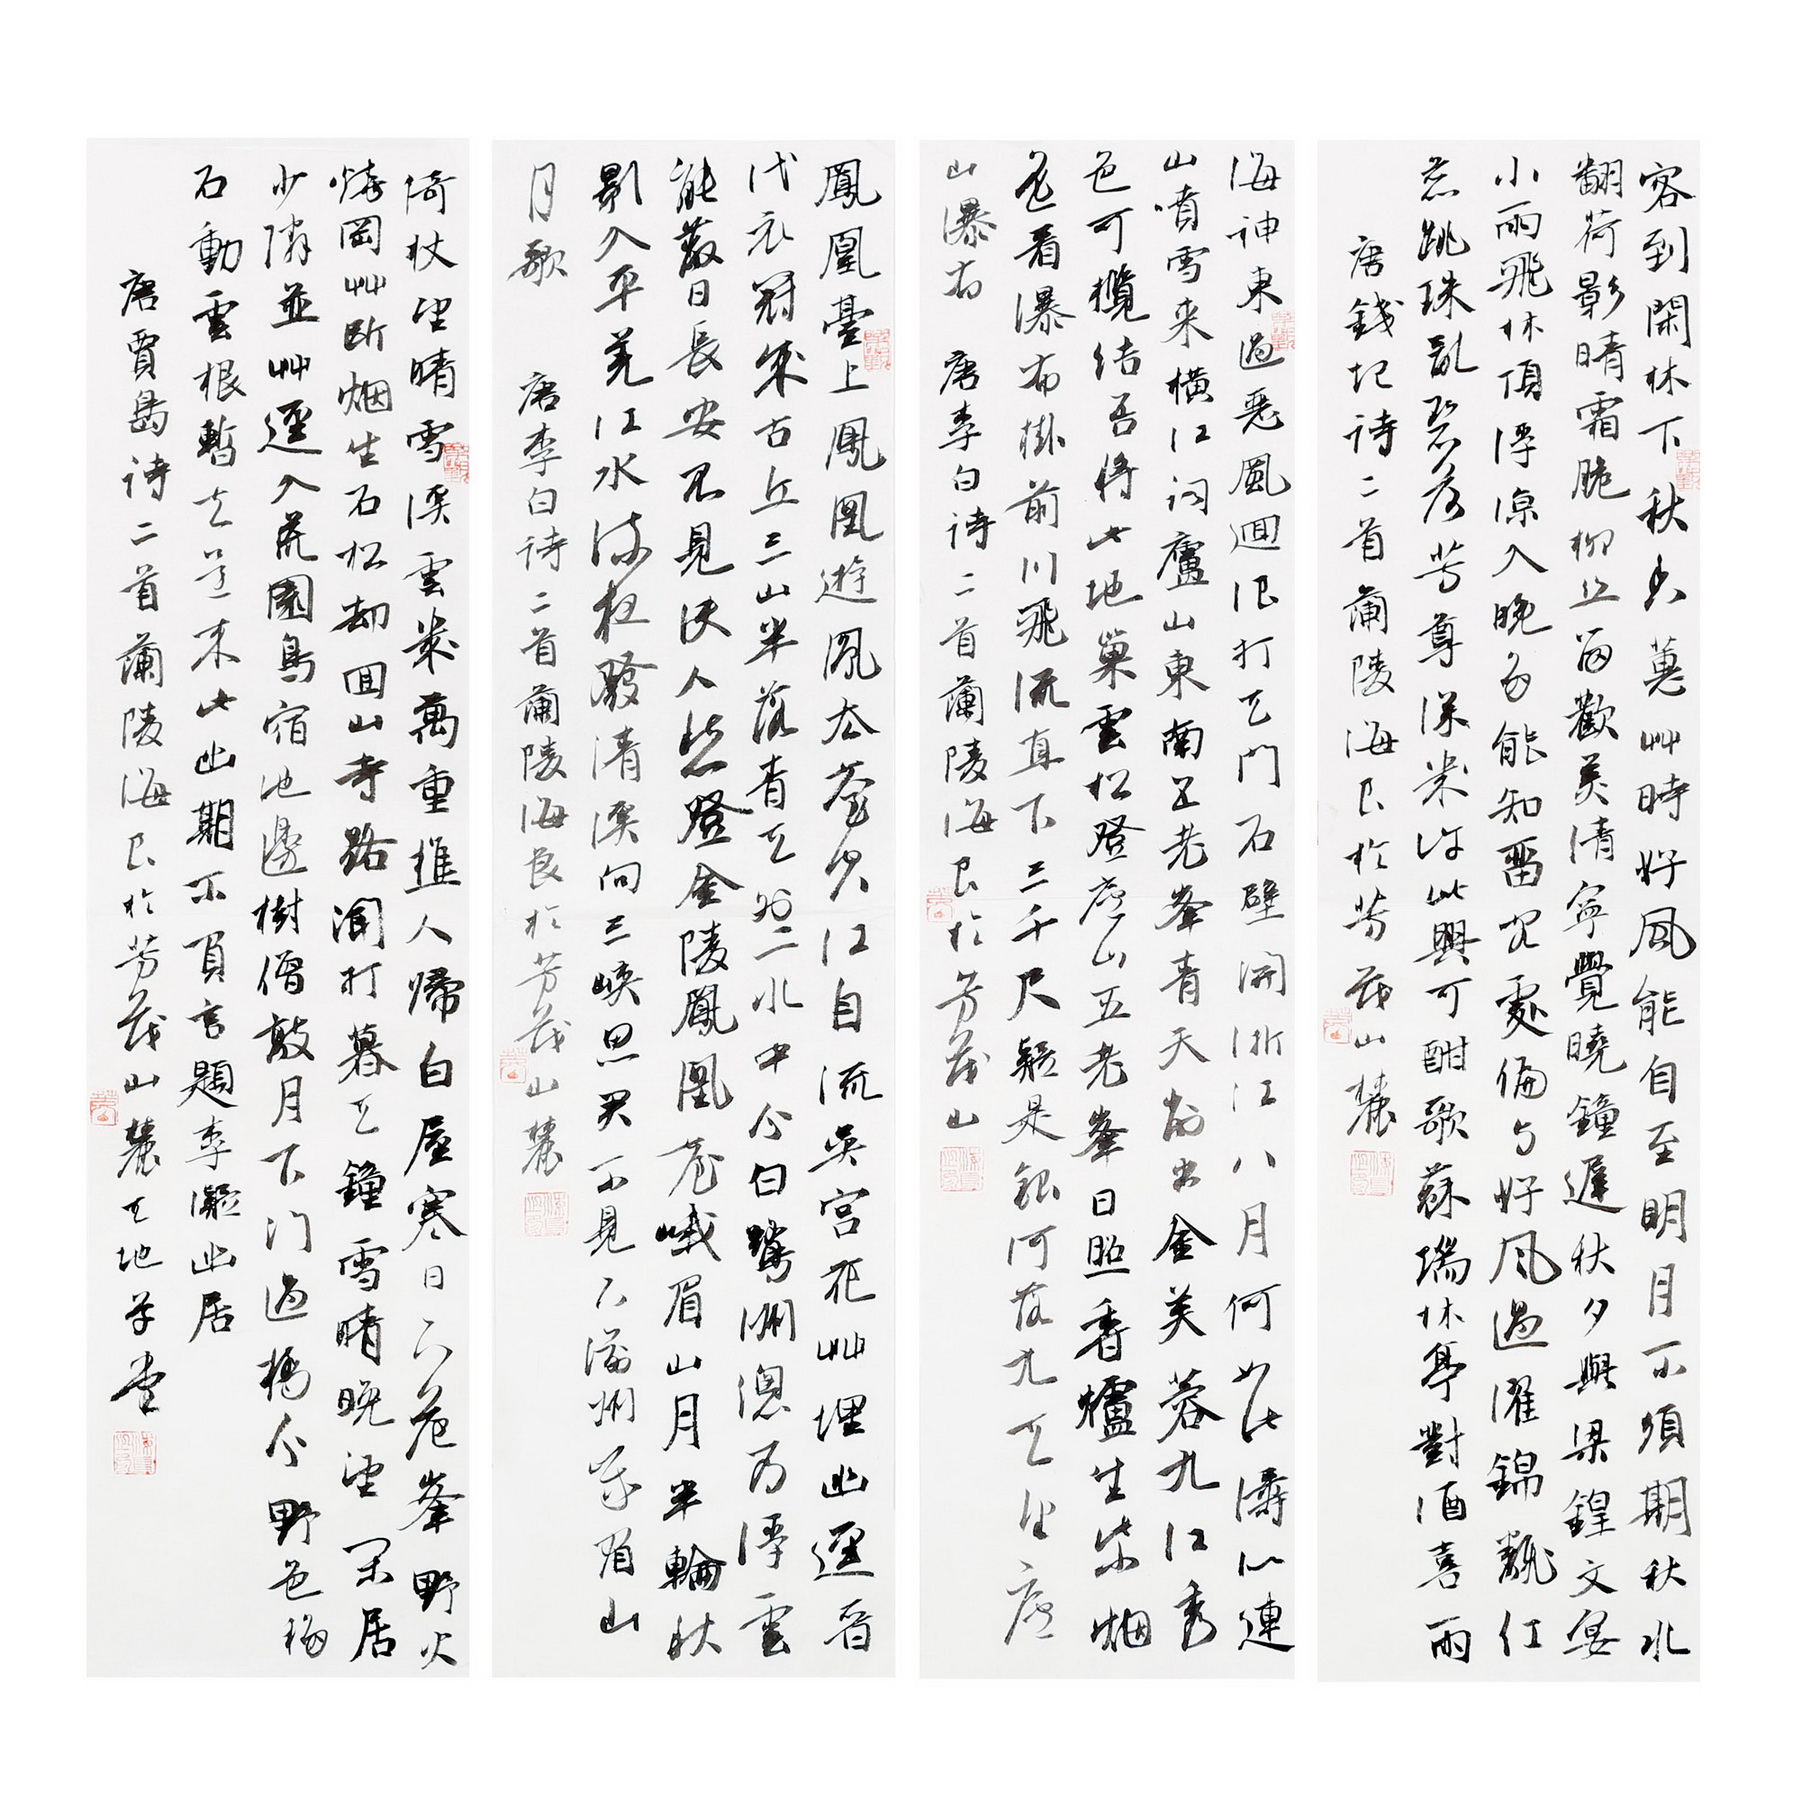 客到閑林下秋香蕙艸時好風能自至明月不須期秋水
翻荷影晴霜脆柳枝留歡美清寧覺曉鐘遲秋夕與梁鍠文宴
小雨飛林頂浮涼入晚多能知留客處偏与好風過濯錦翻紅
蕊跳珠亂碧荷芳尊深幾許此興可酣歌蘇端林亭對酒喜雨
唐錢起詩二首蘭陵海良於芳茂山麓
海神東過惡風迴浪打天門石壁開浙江八月何如此濤似連
山噴雪来橫江詞廬山東南五老峯青天削出金芙蓉九江秀
色可攬結吾將此地巢雲松登廬山五老峯日照香爐生紫烟
遙看瀑布掛前川飛流直下三千尺疑是銀河落九天望廬
山瀑布 唐李白詩二首蘭陵海良於芳茂山
鳳凰臺上鳳凰遊鳳去臺空江自流吳宮花艸埋幽逕晉
代衣冠成古丘三山半落青天外二水中分白鷺洲總为浮雲
能蔽日長安不見使人愁登金陵鳳凰臺峨眉山月半輪秋
影入平羌江水流夜發清溪向三峽思君不見下渝州峨眉山
月歌 唐李白詩二首蘭陵海良於芳茂山麓
倚杖望晴雪溪雲幾萬重樵人歸白屋寒日下危峯野火
燒岡艸斷烟生石松却回山寺路聞打暮天鐘雪晴晚望 閑居
少隣並艸逕入荒園鳥宿池邊樹僧敲月下門過橋分野色移
石動雲根暫去還来此幽期不負言題李凝幽居
唐賈島詩二首蘭陵海良於芳茂山麓天地草堂